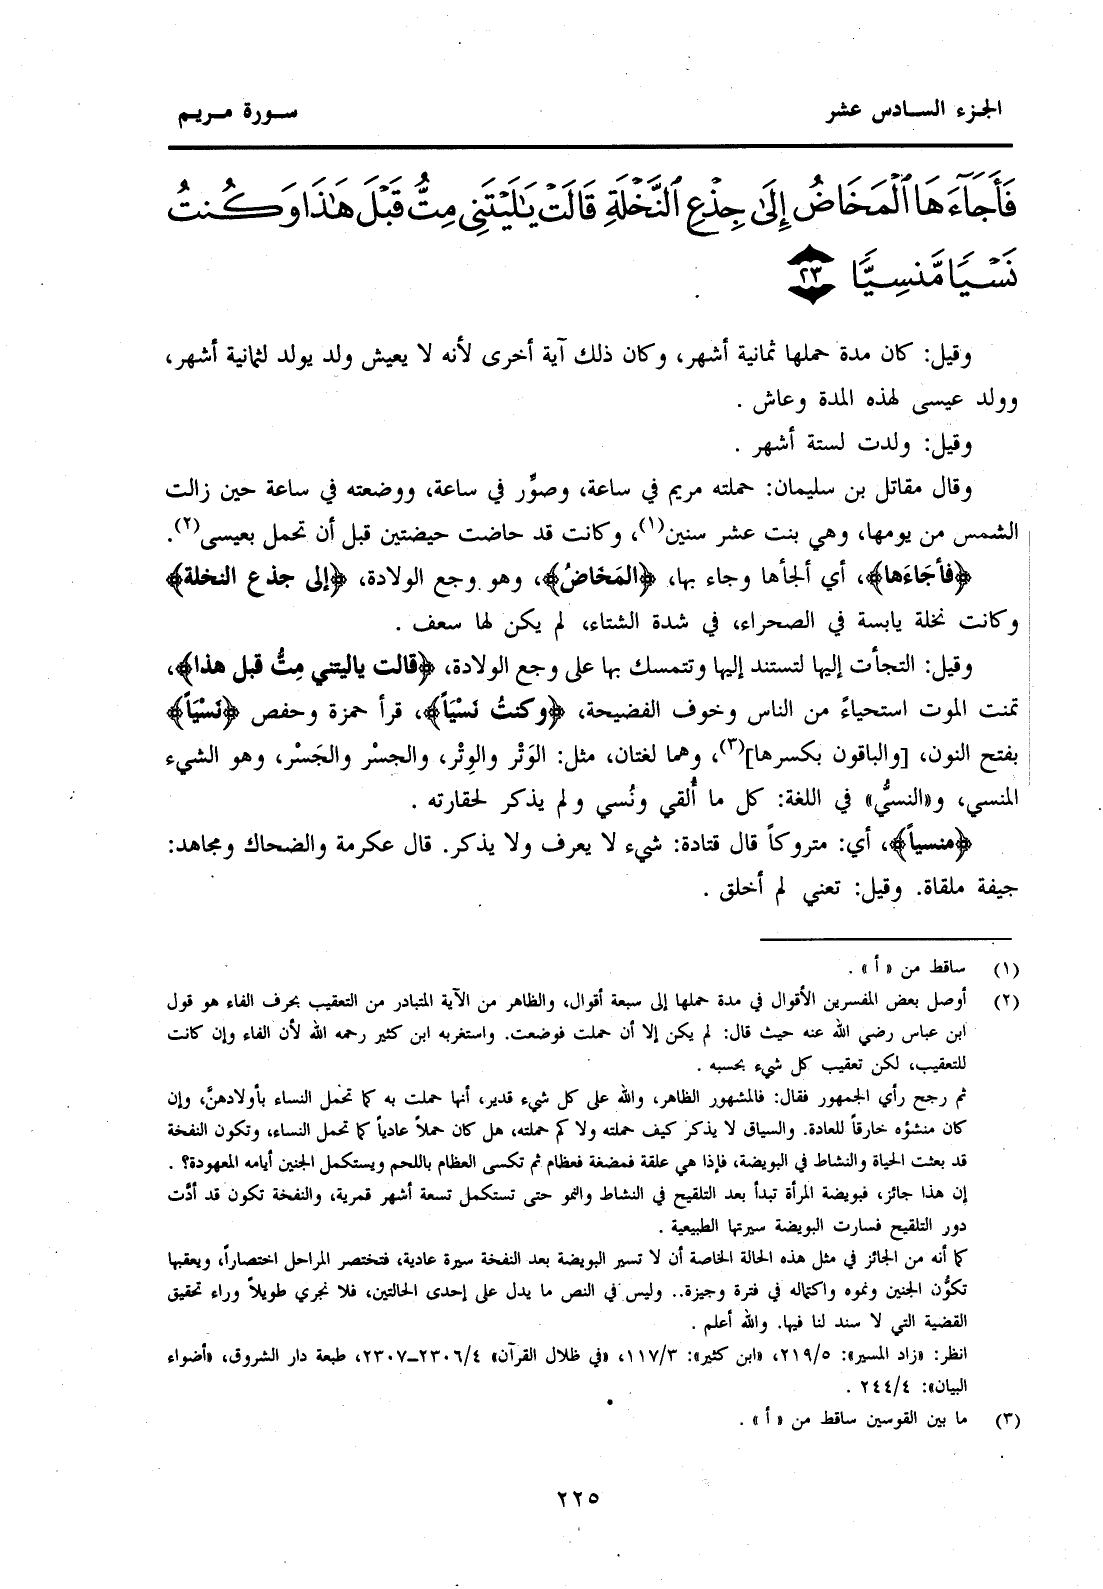 الجزء السادس عشر
سورة مريم
فَأَجَآءَهَا ٱلْمَخَاضُ إِلَىٰ جِذْعِ ٱلنَّخْلَةِ قَالَتْ يَٰلَيْتَنِى مِتُّ قَبْلَ هَٰذَا وَكُنتُ
نَسْيًا مَّنسِيًّا ٢٣
وقيل: كان مدة حملها ثمانية أشهر، وكان ذلك آية أخرى لأنه لا يعيش ولد يولد لثمانية أشهر،
وولد عيسى لهذه المدة وعاش .
وقيل: ولدت لستة أشهر .
وقال مقاتل بن سليمان: حملته مريم في ساعة، وصوِّر في ساعة، ووضعته في ساعة حين زالت
الشمس من يومها، وهي بنت عشر سنين(١)، وكانت قد حاضت حيضتين قبل أن تحمل بعيسى(٢).
﴿فأجَاءَها﴾، أي ألجأها وجاء بها، ﴿المَخَاضُ﴾، وهو وجع الولادة، ﴿إلى جذع النخلة﴾
وكانت نخلة يابسة في الصحراء، في شدة الشتاء، لم يكن لها سعف .
وقيل: التجأت إليها لتستند إليها وتتمسك بها على وجع الولادة، ﴿قالت ياليتني مِتُّ قبل هذا﴾،
تمنت الموت استحياءً من الناس وخوف الفضيحة، ﴿وكنتُ نَسْيَاً﴾، قرأ حمزة وحفص ﴿نَسْيَاً﴾
بفتح النون، [والباقون بكسرها](٣)، وهما لغتان، مثل: الوَتْر والوِتْر، والجِسْر والجَسْر، وهو الشيء
المنسي، و«النسيُّ» في اللغة: كل ما أُلقي ونُسي ولم يذكر لحقارته .
﴿منسياً﴾، أي: متروكاً قال قتادة: شيء لا يعرف ولا يذكر. قال عكرمة والضحاك ومجاهد:
جيفة ملقاة. وقيل: تعني لم أخلق .
(١) ساقط من « أ » .
(٢) أوصل بعض المفسرين الأقوال في مدة حملها إلى سبعة أقوال، والظاهر من الآية المتبادر من التعقيب بحرف الفاء هو قول
ابن عباس رضي الله عنه حيث قال: لم يكن إلا أن حملت فوضعت. واستغربه ابن كثير رحمه الله لأن الفاء وإن كانت
للتعقيب، لكن تعقيب كل شيء بحسبه .
ثم رجح رأي الجمهور فقال: فالمشهور الظاهر، والله على كل شيء قدير، أنها حملت به كما تحمل النساء بأولادهنَّ، وإن
كان منشؤه خارقاً للعادة. والسياق لا يذكر كيف حملته ولا كم حملته، هل كان حملاً عادياً كما تحمل النساء، وتكون النفخة
قد بعثت الحياة والنشاط في البويضة، فإذا هي علقة فمضغة فعظام ثم تكسى العظام باللحم ويستكمل الجنين أيامه المعهودة؟ .
إن هذا جائز، فبويضة المرأة تبدأ بعد التلقيح في النشاط والنمو حتى تستكمل تسعة أشهر قمرية، والنفخة تكون قد أدَّت
دور التلقيح فسارت البويضة سيرتها الطبيعية .
كما أنه من الجائز في مثل هذه الحالة الخاصة أن لا تسير البويضة بعد النفخة سيرة عادية، فتختصر المراحل اختصاراً، ويعقبها
تكوُّن الجنين ونموه واكتماله في فترة وجيزة.. وليس في النص ما يدل على إحدى الحالتين، فلا نجري طويلاً وراء تحقيق
القضية التي لا سند لنا فيها. والله أعلم .
انظر: «زاد المسير»: ٢١٩/٥، «ابن كثير»: ١١٧/٣، «في ظلال القرآن» ٢٣٠٦/٤_٢٣٠٧، طبعة دار الشروق، «أضواء
البيان»: ٢٤٤/٤ .
(٣) ما بين القوسين ساقط من « أ » .
٢٢٥